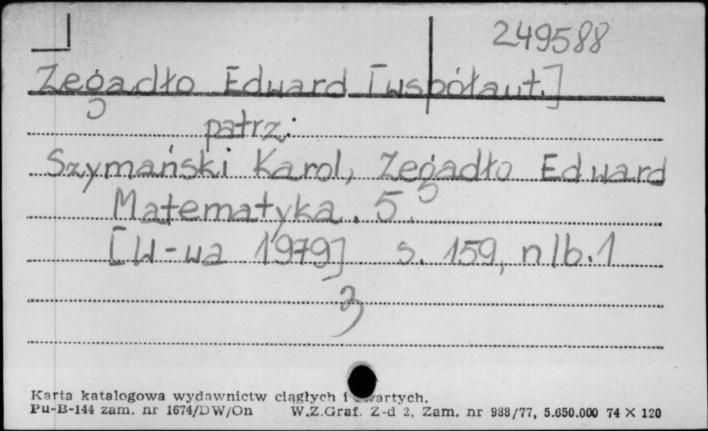 249588
Zegadło Eduard [współaut.]
patrz:
Szymański Karol, Zegadło Eduard
Matematyka. 5.
[W-wa 1979] s. 159, nlb. 1
3
Karta katalogowa wydawnictw ciągłych i zwartych.
Pu-B-144 zam. nr 1674/DW/On W.Z.Graf. Z-d 2. Zam. nr 988/77, 5.650.000 74 X 120